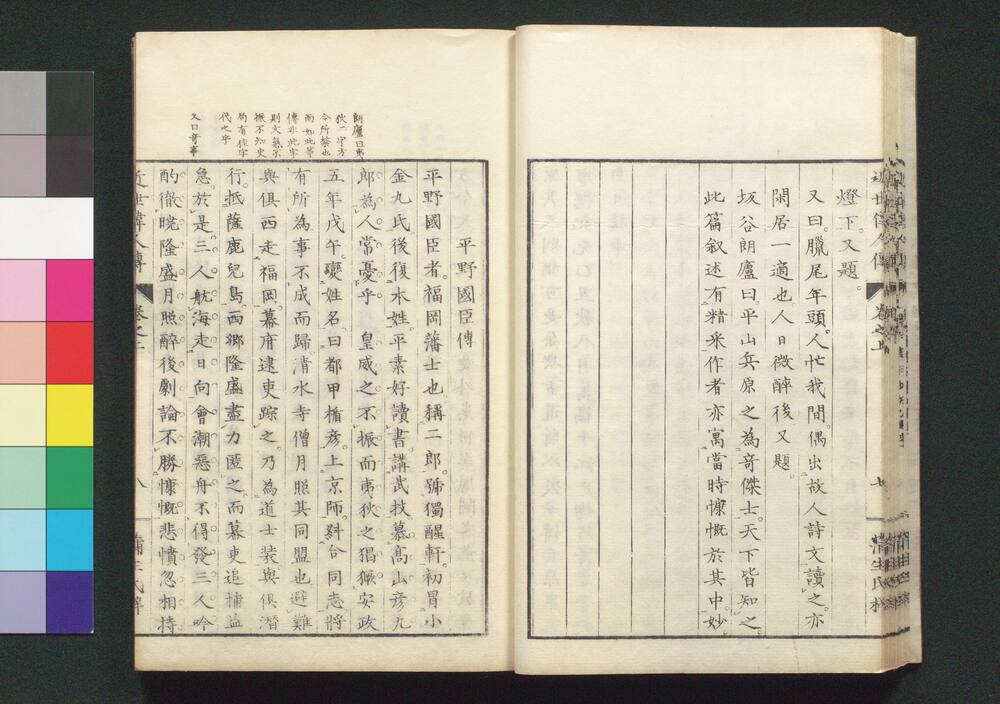 燈下。又題。
又曰。臘尾年頭。人忙我閒。偶出故人詩文讀之。亦
閑居一適也。人日微醉後又題
坂谷朗廬曰。平山兵原之為竒傑士。天下皆知之。
此篇叙述有精釆作者亦寓當時慷慨於其中。妙。
七
朗廬曰夷
狄二字方
今所禁也
而如此等
傳非此字
則文氣不
振不知史
局有佳字
代之乎
又曰竒事
平野國臣傳
平野國臣者。福岡藩士也。稱二郎。號獨醒軒。初冒小
金九氏後復本姓。平素好讀書。講武技。慕高山彦九
郎為人。常憂乎 皇威之不振而夷狄之猖獗。安政
五年戊午。變姓名。曰都甲楯彦。上京師。糾合同志將
有所為。事不成而歸。清水寺僧月照其同盟也。避難
與俱西走福岡。幕府逮吏踪之。乃為道士装。與俱潛
行。抵薩鹿兒島。西郷隆盛盡力匿之。而幕吏追捕益
急。於是三人航海走日向。會潮惡舟不得發。三人吟
酌徹曉。隆盛月照醉後劇論。不勝慷慨悲憤。忽相持
近世偉人傳
八
蒲生氏